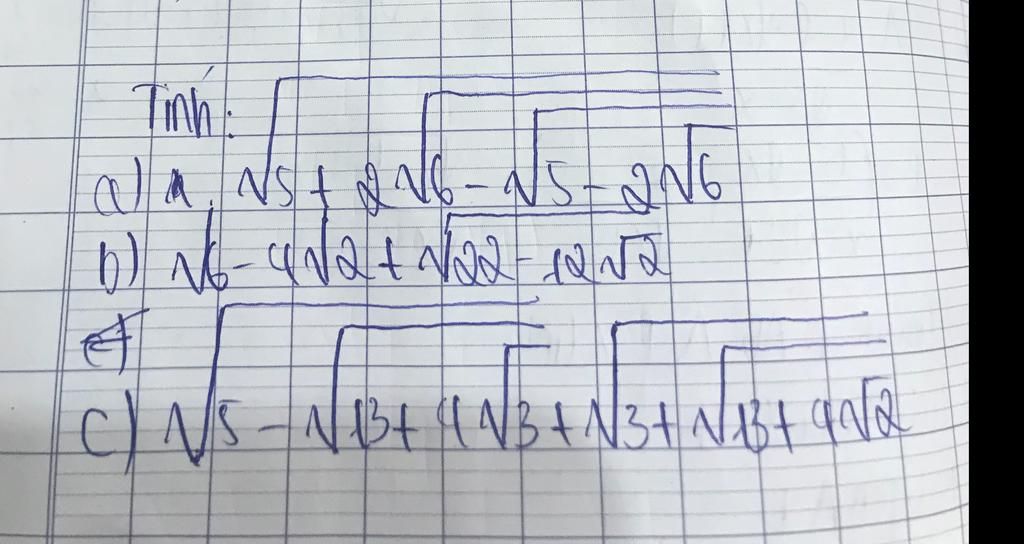 Tính:
a) √5 + 2√6 - √5 - 2√6
b) √6 - 4√2 + √22 - 12√2
c) √5 - √13 + 4√3 + √3 + √13 + 4√2